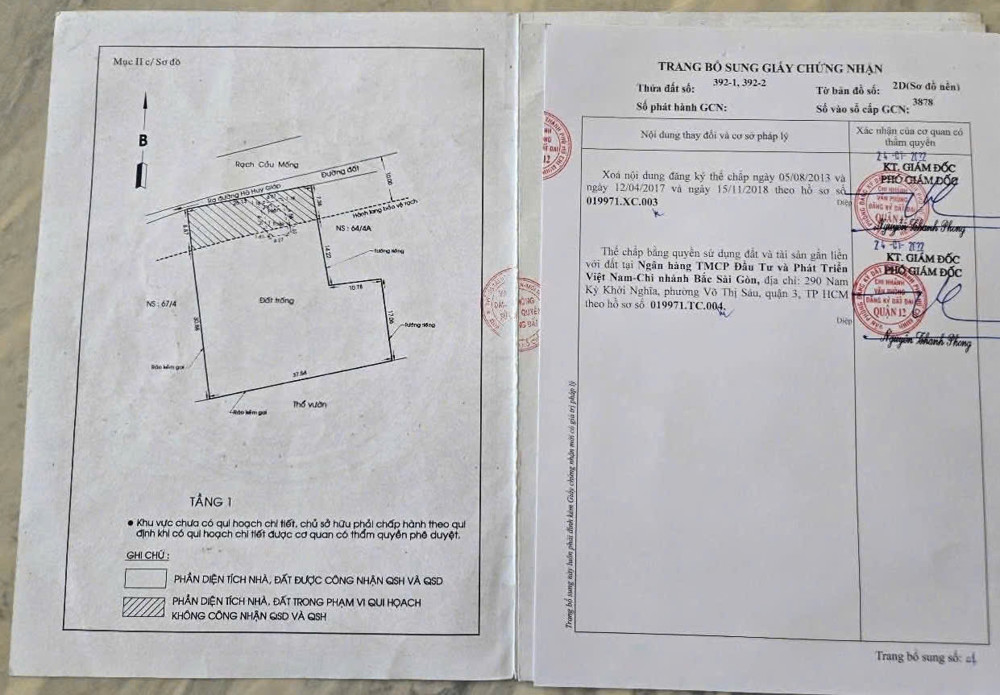 Mục II c/ Sơ đồ
B
Rạch Cầu Mống
Đường đất
Ra đường Hà Huy Giáp
10.00
Hành lang bảo vệ rạch
NS: 64/4A
Tường riêng
14.22
10.78
NS: 67/4
Đất trống
17.09
Tường riêng
Rào kẽm gai
37.54
Rào kẽm gai
Thổ vườn
TẦNG 1
• Khu vực chưa có qui hoạch chi tiết, chủ sở hữu phải chấp hành theo qui
định khi có qui hoạch chi tiết được cơ quan có thẩm quyền phê duyệt.
GHI CHÚ:
PHẦN DIỆN TÍCH NHÀ, ĐẤT ĐƯỢC CÔNG NHẬN QSH VÀ QSD
PHẦN DIỆN TÍCH NHÀ, ĐẤT TRONG PHẠM VI QUI HOẠCH
KHÔNG CÔNG NHẬN QSD VÀ QSH
TRANG BỔ SUNG GIẤY CHỨNG NHẬN
Thửa đất số: 392-1, 392-2 Tờ bản đồ số: 2D(Sơ đồ nền)
Số phát hành GCN: Số vào sổ cấp GCN: 3878
Nội dung thay đổi và cơ sở pháp lý
Xác nhận của cơ quan có
thẩm quyền
Xoá nội dung đăng ký thế chấp ngày 05/08/2013 và
ngày 12/04/2017 và ngày 15/11/2018 theo hồ sơ số
019971.XC.003
Diệp
24-01-2022
KT. GIÁM ĐỐC
PHÓ GIÁM ĐỐC
CHI NHÁNH
VĂN PHÒNG
ĐĂNG KÝ ĐẤT ĐAI
QUẬN 12
Nguyễn Thanh Phong
Thế chấp bằng quyền sử dụng đất và tài sản gắn liền
với đất tại Ngân hàng TMCP Đầu Tư và Phát Triển
Việt Nam-Chi nhánh Bắc Sài Gòn, địa chỉ: 290 Nam
Kỳ Khởi Nghĩa, phường Võ Thị Sáu, quận 3, TP HCM
theo hồ sơ số 019971.TC.004
Diệp
24-01-2022
KT. GIÁM ĐỐC
PHÓ GIÁM ĐỐC
CHI NHÁNH
VĂN PHÒNG
ĐĂNG KÝ ĐẤT ĐAI
QUẬN 12
Nguyễn Thanh Phong
Trang bổ sung này luôn phải đính kèm Giấy chứng nhận mới có giá trị pháp lý
Trang bổ sung số: